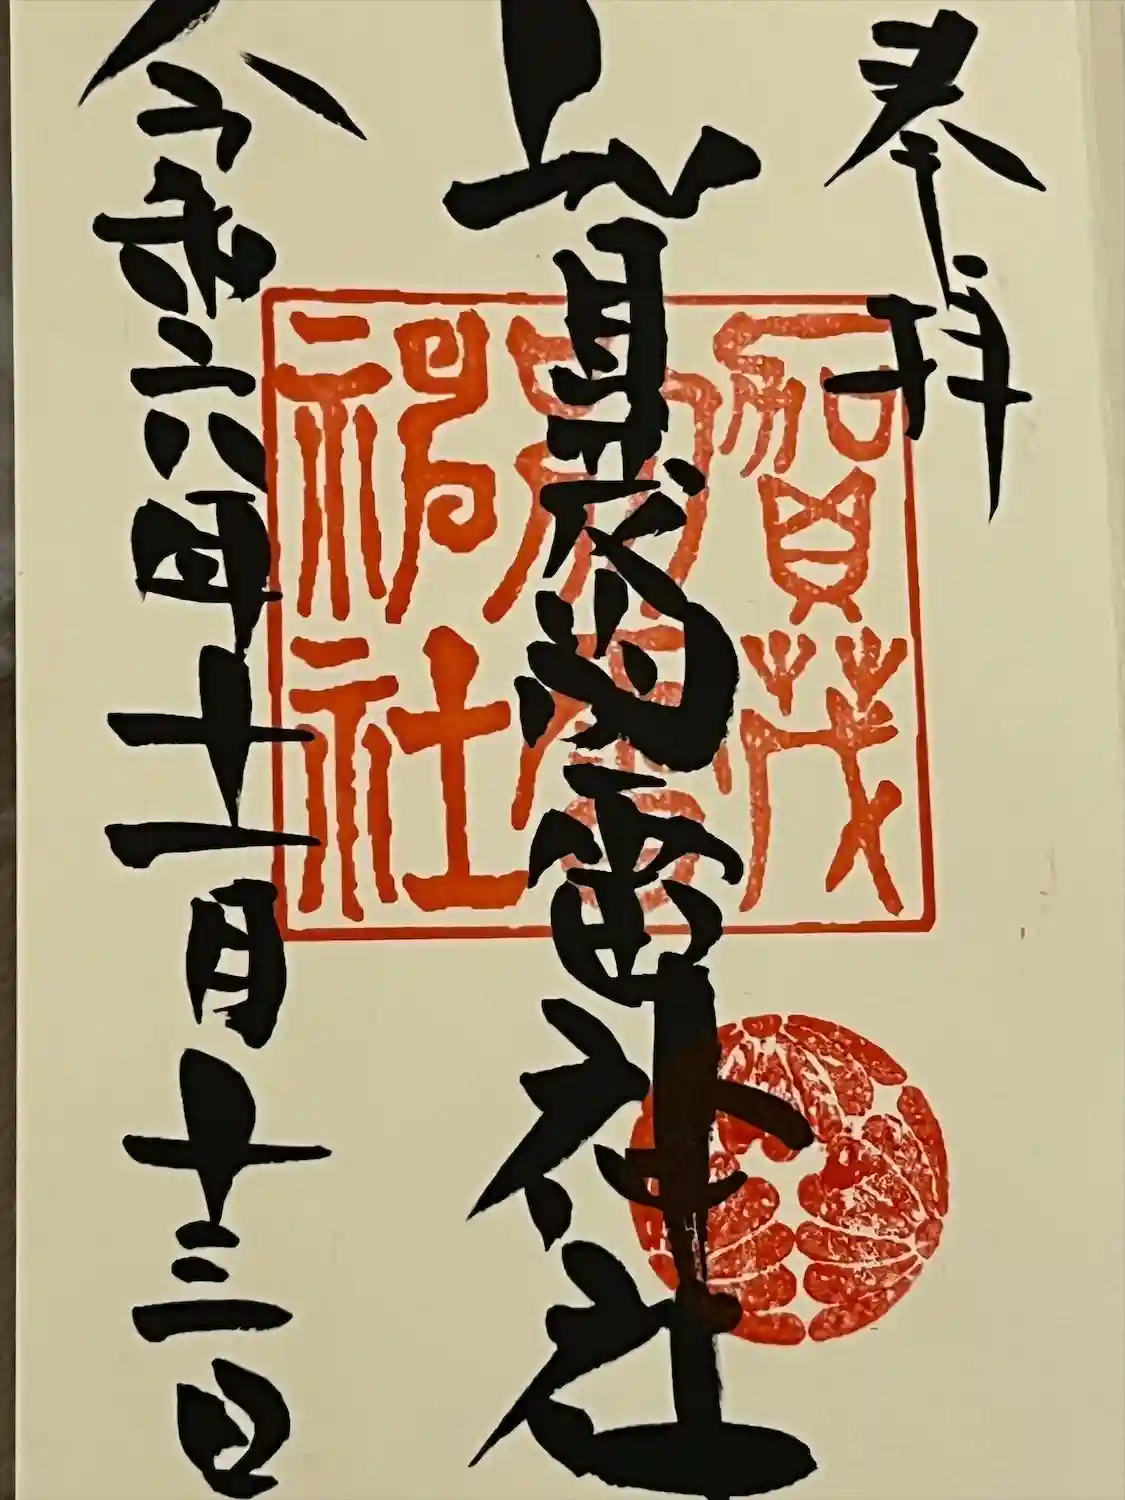 奉拝
賀茂別雷神社
賀茂
別雷
神社
令和六年十一月十三日